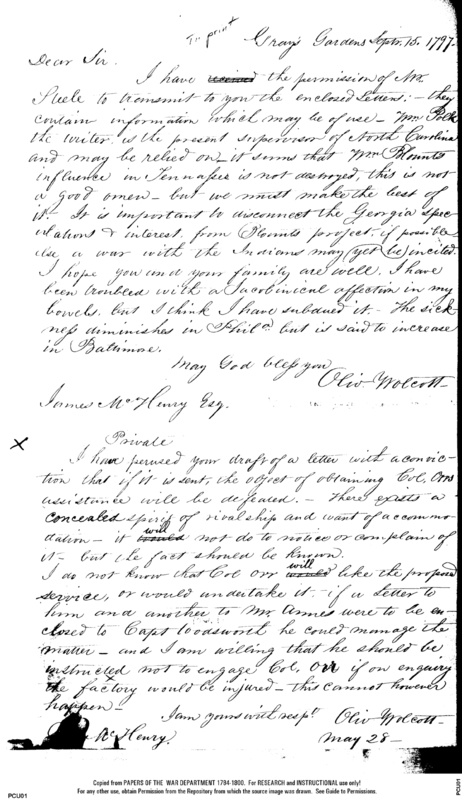 To print
Gray's Gardens Septr. 15. 1797.
Dear Sir.
I have received the permission of Mr.
Steele to transmit to you the enclosed Letters: — they
contain information which may be of use — Wm. Polk
the writer, is the present supervisor of North Carolina
and may be relied on — it seems that Wm. Blounts
influence in Tennassee is not destroyed, this is not
a good omen — but we must make the best of
it. — It is important to disconnect the Georgia spec
ulations & interest, from Blounts project, if possible
else a war with the Indians may yet be incited.
I hope you and your family are well. I have
been troubled with a Jacobinical affection in my
bowels, but I think I have subdued it. — The sick
ness diminishes in Phild. but is said to increase
in Baltimore.
May God bless you
Oliv Wolcott —
James McHenry Esq.
Private
I have perused your draft of a letter with a convic
tion that if it is sent, the object of obtaining Col. Orrs
assistance will be defeated. — There exists a
concealed spirit of rivalship and want of accommo
dation — it would will not do to notice or complain of
it — but the fact should be known.
I do not know that Col Orr would will like the proposed
service, or would undertake it. if a Letter to
him and another to Mr. Ames were to be en
closed to Capt Woodsworth he could manage the
matter — and I am willing that he should be
instructed not to engage Col. Orr if on enquiry
the factory would be injured — this cannot however
happen —
I am yours with respt. Oliv Wolcott —
McHenry. May 28 —
Copied from PAPERS OF THE WAR DEPARTMENT 1784-1800. For RESEARCH and INSTRUCTIONAL use only!
For any other use, obtain Permission from the Repository from which the source image was drawn. See Guide to Permissions.
PCU01
PCU01